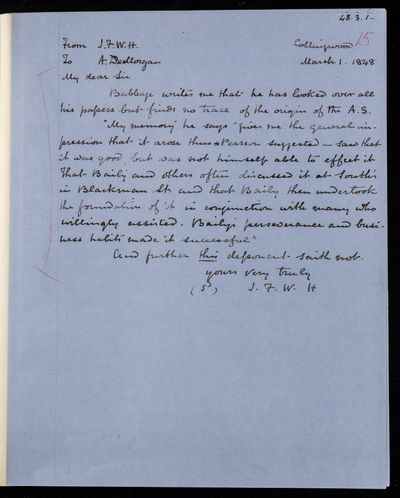 48.3.1.
15
From J.F.W.H. Collingwood
To A. DeMorgan March 1. 1848
My dear Sir
Babbage writes me that he has looked over all
his papers but finds no trace of the origin of the A.S.
"My memory" he says "gives me the general im-
pression that it arose thus Pearson suggested — saw that
it was good but was not himself able to effect it
That Baily and others often discussed it at South's
in Blackman St. and that Baily then undertook
the foundation of it in conjunction with many who
willingly assisted. Baily's perseverance and busi-
ness habits made it successful"
And further this deponent saith not.
yours very truly
(S) J. F. W. H